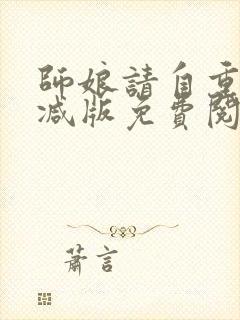 師娘請自重
減版免費閱
蕭言